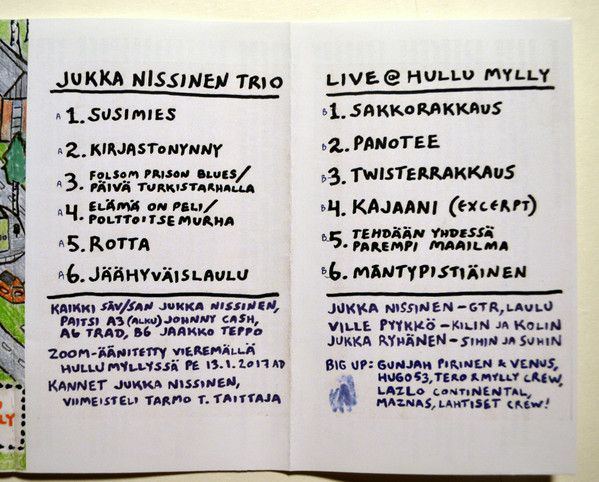 JUKKA NISSINEN TRIO
A 1. SUSIMIES
A 2. KIRJASTONYNNY
A 3. FOLSOM PRISON BLUES/
PÄIVÄ TURKISTARHALLA
A 4. ELÄMÄ ON PELI/
POLTTOITSEMURHA
A 5. ROTTA
A 6. JÄÄHYVÄISLAULU
KAIKKI SÄV/SAN JUKKA NISSINEN,
PAITSI A3 (ALKU) JOHNNY CASH,
A6 TRAD, B6 JAAKKO TEPPO
ZOOM-ÄÄNITETTY VIEREMÄLLÄ
HULLU MYLLYSSÄ PE 13.1.2017 AD
KANNET JUKKA NISSINEN,
VIIMEISTELI TARMO T. TAITTAJA
LIVE @ HULLU MYLLY
B 1. SAKKORAKKAUS
B 2. PANOTEE
B 3. TWISTERRAKKAUS
B 4. KAJAANI (EXCERPT)
B 5. TEHDÄÄN YHDESSÄ
PAREMPI MAAILMA
B 6. MÄNTYPISTIÄINEN
JUKKA NISSINEN – GTR, LAULU
VILLE PYYKKÖ – KILIN JA KOLIN
JUKKA RYHÄNEN – SIHIN JA SUHIN
BIG UP: GUNJAH PIRINEN & VENUS,
HUGO53, TERO & MYLLY CREW,
LAZLO CONTINENTAL,
MAZNAS, LAHTISET CREW!